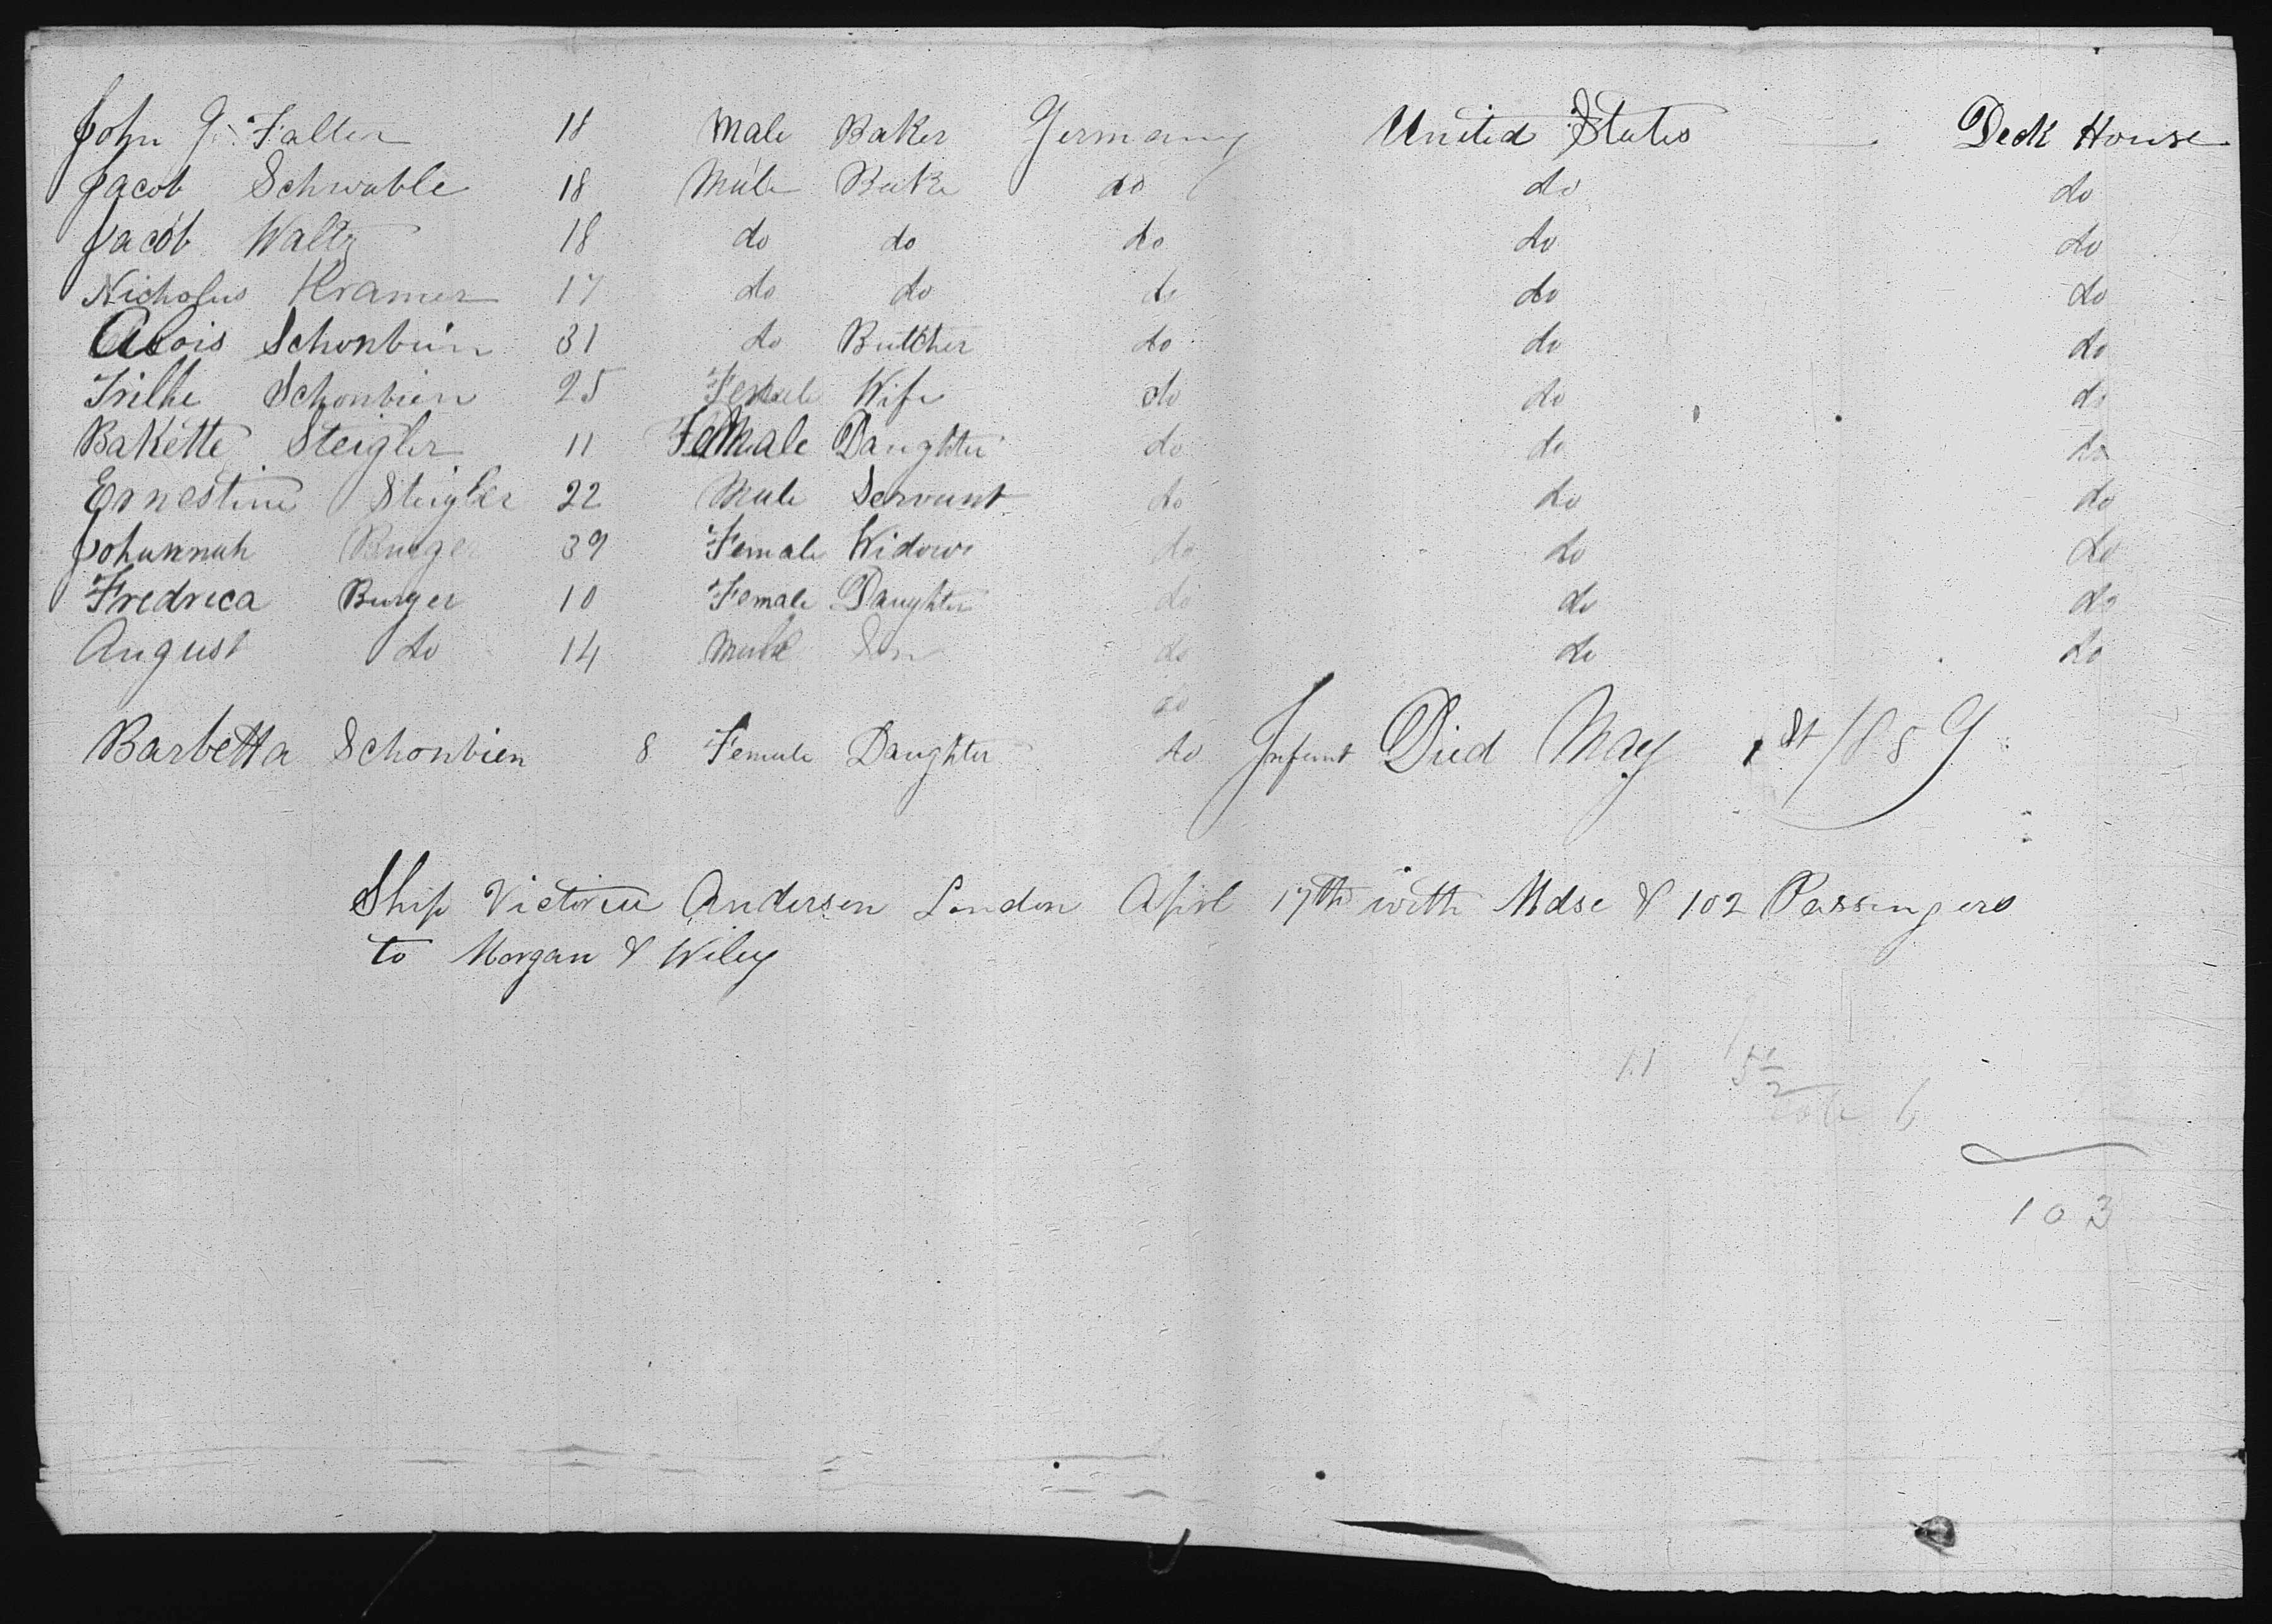 John G. Falter 18 Male Baker Germany United States — Deck House
Jacob Schwable 18 Male Bake do do do
Jacob Waltz 18 do do do do do
Nicholus Kramer 17 do do do do do
Alois Schonbien 31 do Buttcher do do do
Schonbien 25 Female Wife do do do
Bakette Steigler 11 Female Daughter do do do
Ernestine Steigler 22 Male Servant do do do
Johannah Burger 39 Female Widow do do do
Fredreca Burger 10 Female Daughter do do do
August do 14 Male Son do do do
do
Barbetta Schonbien 8 Female Daughter do Infant Died May 1st 1859
Ship Victoria Andersen London April 17th with Mdse & 102 Passengers
to Morgan & Wiley
11
103